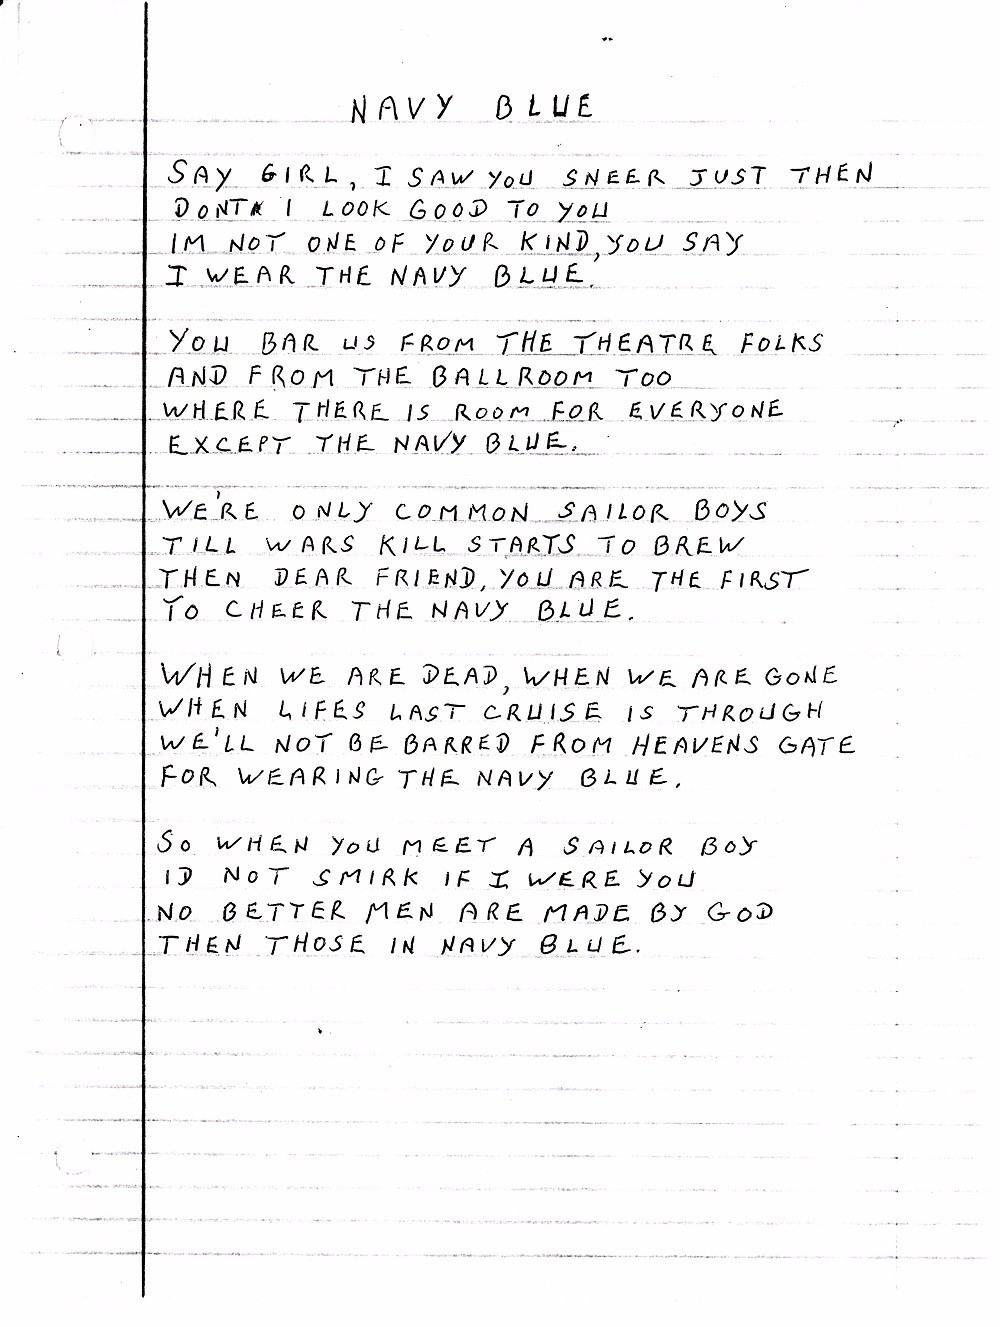 NAVY BLUE
SAY GIRL, I SAW YOU SNEER JUST THEN
DONT I LOOK GOOD TO YOU
IM NOT ONE OF YOUR KIND, YOU SAY
I WEAR THE NAVY BLUE.
YOU BAR US FROM THE THEATRE FOLKS
AND FROM THE BALLROOM TOO
WHERE THERE IS ROOM FOR EVERYONE
EXCEPT THE NAVY BLUE.
WE'RE ONLY COMMON SAILOR BOYS
TILL WARS KILL STARTS TO BREW
THEN DEAR FRIEND, YOU ARE THE FIRST
TO CHEER THE NAVY BLUE.
WHEN WE ARE DEAD, WHEN WE ARE GONE
WHEN LIFES LAST CRUISE IS THROUGH
WE'LL NOT BE BARRED FROM HEAVENS GATE
FOR WEARING THE NAVY BLUE.
SO WHEN YOU MEET A SAILOR BOY
ID NOT SMIRK IF I WERE YOU
NO BETTER MEN ARE MADE BY GOD
THEN THOSE IN NAVY BLUE.